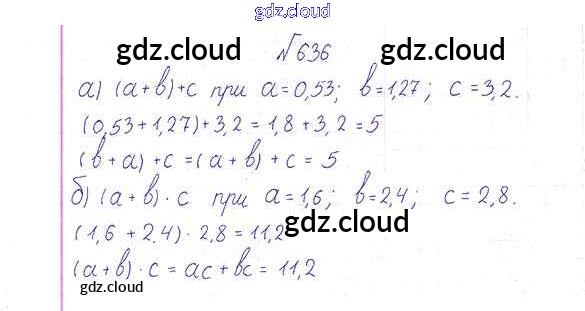 gdz.cloud
gdz.cloud №636 gdz.cloud
а) (а+в)+с при а=0,53; в=1,27; с=3,2.
(0,53+1,27)+3,2=1,8+3,2=5
(в+а)+с=(а+в)+с=5
б) (а+в)·с при а=1,6; в=2,4; с=2,8.
(1,6+2,4)·2,8=11,2 gdz.cloud
(а+в)·с=ас+вс=11,2
gdz.cloud